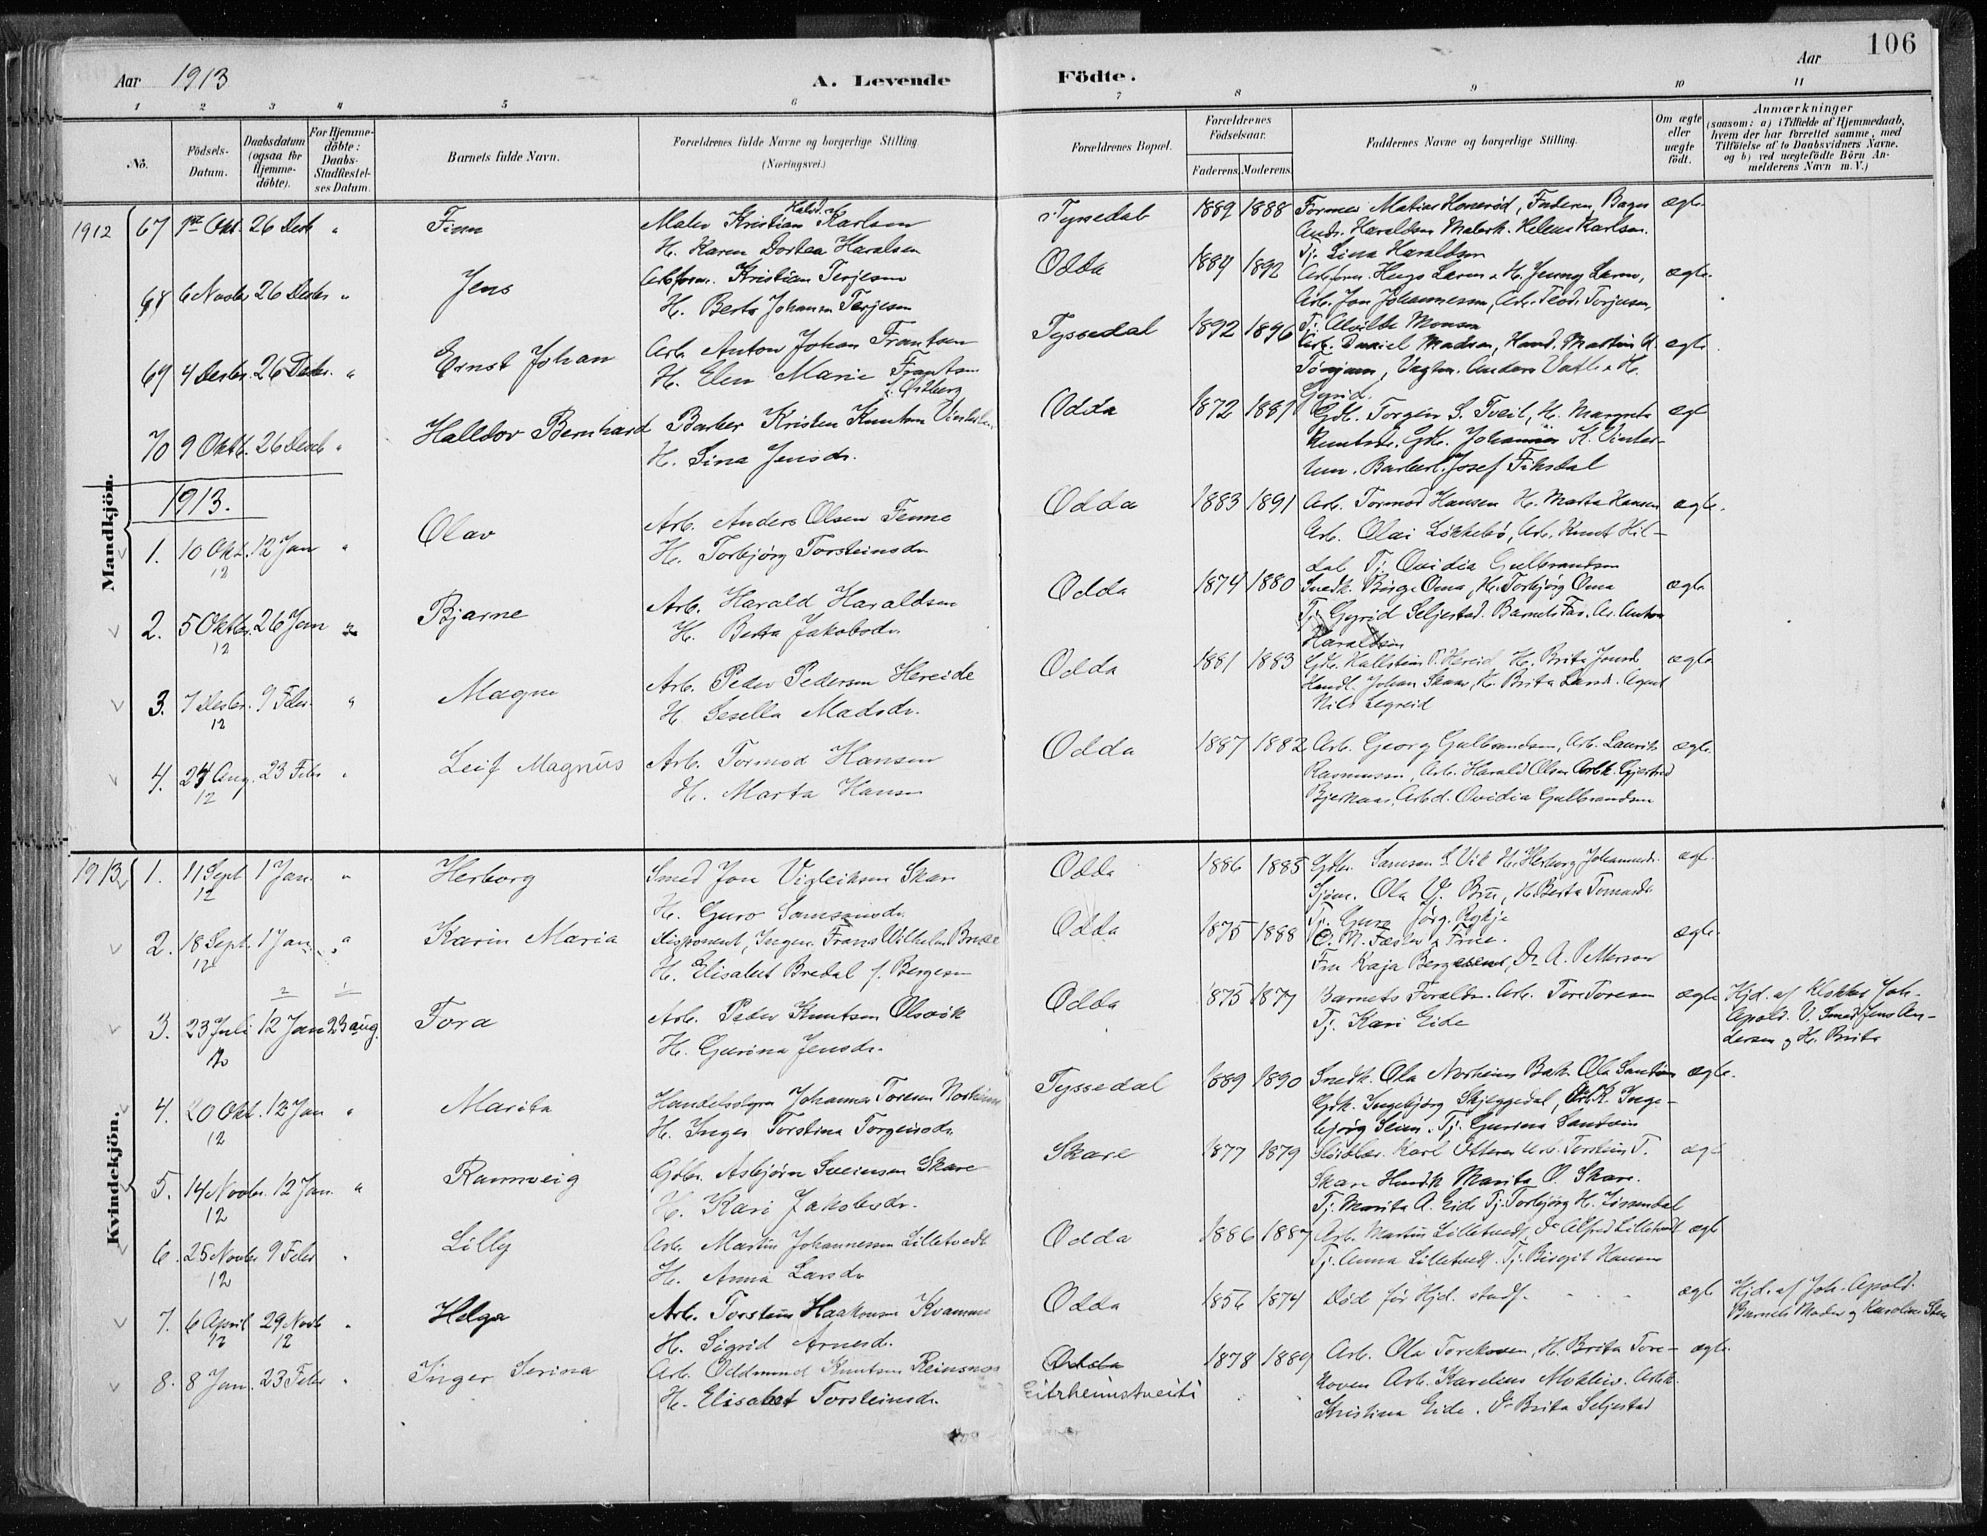 106
Aar 1913
A. Levende Födte.
Aar
1 2 3 4 5 6 7 8 9 10 11
No.
Födsels-Datum.
Daabsdatum (ogsaa for Hjemme-döbte).
For Hjemme-döbte: Daabs-Stadfæstel-ses Datum.
Barnets fulde Navn.
Forældrenes fulde Navne og borgerlige Stilling (Næringsvei.)
Forældrenes Bopæl.
Forældrenes Födselsaar.
Faderens. Moderens.
Faddernes Navne og borgerlige Stilling.
Om ægte eller uægte födt.
Anmærkninger
(saasom: a) i Tilfælde af Hjemmedaab, hvem der har forrettet samme, med Tilföielse af to Daabsvidners Navne. og b) ved uægtefödte Börn An-melderens Navn m. V.)
Mandkjön.
1912 67 Okt. 26 Desb " Finn
Maler Kristian Karlsen
H. Karen Dortea Haralsen
Tyssedal 1889 1888
Haraldsen Malerh. Helene Karlsen.
Tj. Lina Haraldsen
ægte
68 6 Novbr 26 Desbr " Jens
Kristian Terjesen
H. Berta Johanna Terjesen
Odda 1884 1892
ægte.
69 4 Desbr. 26 Desbr. " Ernst Johan
Arb. Anton Johan Frantsen
H. Elen Marie Frantsen
f. Østberg
Tyssedal 1892 1896
Arb. Daniel Madsen, Hand. Martin
ægte.
70 9 Oktb. 26 Desb " Halldor Bernhard
Barber Kristen Knutsen
H. Sina Jensdr.
Odda 1872 1881
Gbr. Torgeir S. Tveit, H. Margreta
Knutsdr. Gbr. Johannes K. Vinter-
tun. Barber Josef Fiksdal
ægt
1913.
1. 10 Okt. 12 Jan " Olav
12
Arb. Anders Olsen Tenne
H. Torbjørg Torsteinsdr
Odda 1883 1891
Arb. Tormod Hansen H. Marta Hansen
Arb. Olai Løkkebø, Arb. Knut Hil-
dal Tj. Ovidia Gulbrandsen
ægte.
2. 5 Oktbr. 26 Jan " Bjarne
12
Arb. Harald Haraldsen
H. Berta Jakobsdr.
Odda 1874 1880
Snedk. Birge Oma, H. Torbjørg Oma
Tj. Gyrid Seljestad. Barnets Far. Ar. Anton
Haraldsen
ægte
3. 7 Desbr. 9 Febr. " Magne
12
Arb. Peder Pedersen Hereide
H. Sesella Madsdr.
Odda 1881 1883
Gbr. Hallstein P. Hereid, H. Brita
Handl. Johan Skaar, H. Brita Agent
Nils Legreid
ægte
4. 24 Aug. 23 Febr " Leif Magnus
12
Arb. Tormod Hansen
H. Marta Hansen
Odda 1887 1882
Arb. Georg Gulbrandsen, Arb. Laurits
Rasmussen, Arb. Harald Olsen Arbk. Gjertrud
Bjerknæs, Arbd. Ovidia Gulbrandsen
ægte.
Kvindekjön.
1913 1. 11 Sept 1 Jan. " Herborg
12
Smed Jon Vigleiksen Skare
H. Guro Samsonsdr.
Odda 1886 1885
Gbr. Samson L. Vik H. Herborg Johannesdr.
Ola V. Bru, H. Berta
Tj. Guro Jørg. Rykje
ægt.
2. 18 Sept. 1 Jan. " Karin Maria
12
Disponent, Ingen. Frans Wilhelm
H. Elisabet Bredal f. Bergesen
Odda 1875 1888
Frue.
Fru Kaja Bergesen, Dr A. Petterson
ægte.
3. 23 Juli 12 Jan 23 aug. Tora
12
Arb. Peder Knutsen Olsvik
H. Gurina Jensdr.
Odda 1875 1877
Barnets Foraldre. Arb. Tore Toresen
Tj. Kari Eide
ægte
Hjd. af Klokker Joh.
Apold. V. Smed Jens An-
dersen og H. Brita
4. 20 Okt. 12 Jan " Marita
12
Handelsbgm Johannes Toresen Norheim
H. Inger Torstina Torgeirsdr.
Tyssedal 1889 1890
Snedk. Ola Norheim Bak. Ola Santvin
Gbk. Ingebjørg Skjeggedal, Inge-
bjørg Seim. Tj. Gurina Santvin
ægte.
5. 14 Novbr. 12 Jan. " Rannveig
12
Gbr. Asbjørn Sveinsen Skare
H. Kari Jakobsdr.
Skare 1877 1879
Karl Otternes Arb. Torstein T.
Skare Handk Marita O. Skare.
Tj. Marita A. Eide Tj. Torbjørg H. Jøsendal
ægte
6. 25 Novbr 9 Febr " Lilly
12
Arb. Martin Johannessen Lilletvedt
H. Anna Larsdr
Odda 1886 1887
Arb. Martin Lilletvedt, Do Alfred Lilletvedt
Tj. Anna Lilletvedt. Tj. Birgit Hansen
ægte
7. 6 April 29 Novb " Helga
12 12
Arb. Torstein Haakonsen Kvamme
H. Sigrid Arnesd.
Odda 1856 1874
Død før Hjd. stadf.
ægte
Hjd. af Joh. Apold.
Barnets Moder og Karoline
8. 8 Jan. 23 Febr " Inger Serina
Arb. Oddmund Knutsen Reinsnos
H. Elisabet Torsteinsdr.
Odda
Eitrheimstveiti
1878 1889
Arb. Ola Torekoven, H. Brita Tore-
koven Arb. Karelius Mokleiv. Arbk.
Kristina Eide. Do Brita Seljestad
ægte.